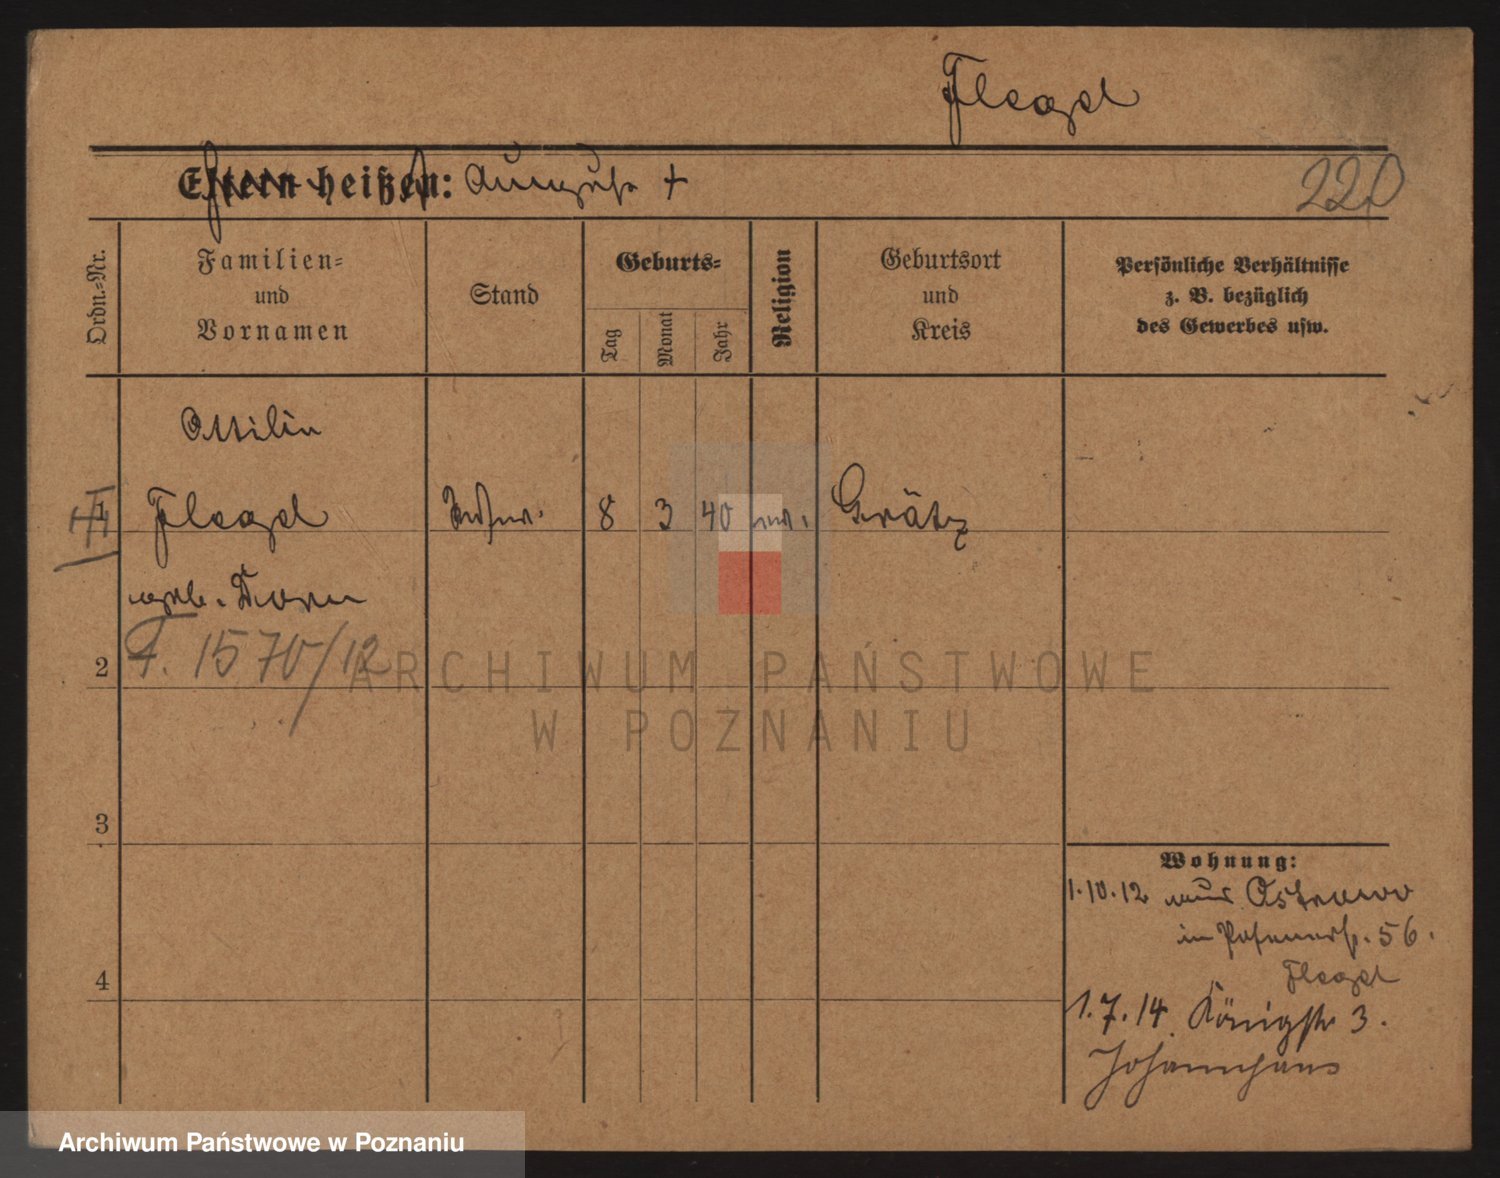 Flegel
Eltern heißen: August +
220
Ordn.-Nr.
Familien-
und
Vornamen
Stand
Geburts-
Tag
Monat
Jahr
Religion
Geburtsort
und
Kreis
Persönliche Verhältnisse
z. B. bezüglich
des Gewerbes usw.
Ottilie
1 Flegel 8 3 40 ev. Grätz
geb. Dorn
2 F. 1570/12
3
4
Wohnung:
1.10.12 aus Ostrowo
in Posenerstr. 56.
Flegel
1.7.14 Königstr 3.
Johannhaus
ARCHIWUM PAŃSTWOWE
W POZNANIU
Archiwum Państwowe w Poznaniu